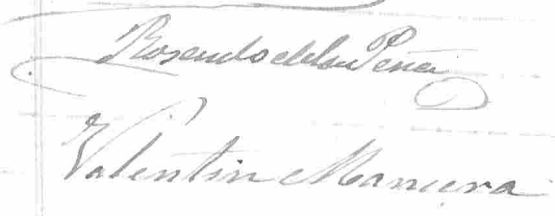 Rosendo de la Peña
Valentin Mancera